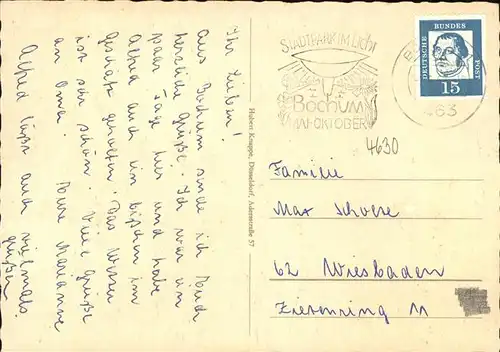 Ihr Lieben!
Aus Bochum sende ich Euch
herzliche Grüße. Ich war ein
paar Tage hier und habe
Alfred auch ein bißchen im
Geschäft geholfen. Das Wetter
ist sehr schön. Viele Grüße
an Oma. Eure Marianne
Alfred läßt auch vielmals
grüßen
Hubert Knappe, Düsseldorf, Adersstraße 57
STADTPARK IM Licht
Bochum
MAI-OKTOBER
463
DEUTSCHE
BUNDES
POST
15
4630
Familie
Max
62 Wiesbaden
Zietenring 11